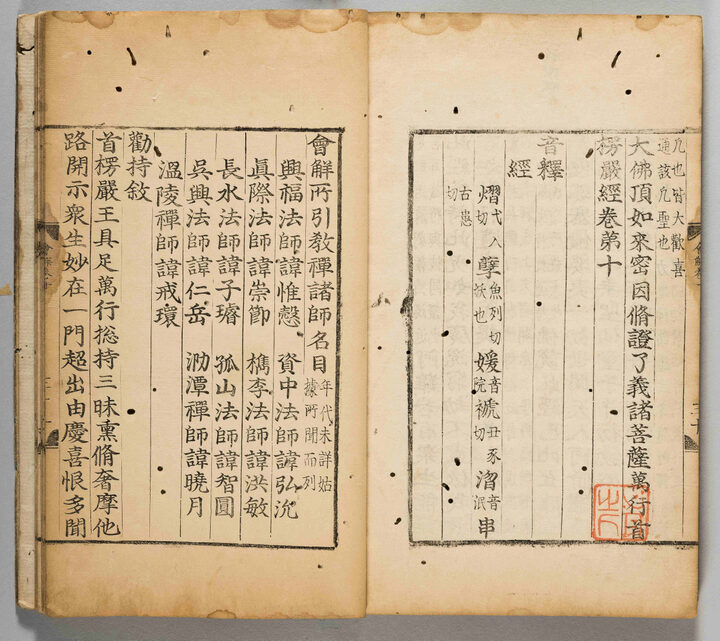 凢也皆大歡喜
通該凢聖也
大佛頂如來密因脩證了義諸菩薩萬行首
楞嚴經卷第十
音釋
經
熠弋入切 孽魚列切妖也 媛音院 褫丑豸切 湣音泯 串
古患切
會解所引教禪諸師名目 年代未詳姑據所聞而列
興福法師諱惟慤 資中法師諱弘沇
眞際法師諱崇節 檇李法師諱洪敏
長水法師諱子璿 孤山法師諱智圓
吳興法師諱仁岳 泐潭禪師諱曉月
溫陵禪師諱戒環
勸持敘
首楞嚴王具足萬行捴持三昧熏脩奢摩他
路開示衆生妙在一門超出由慶喜恨多聞